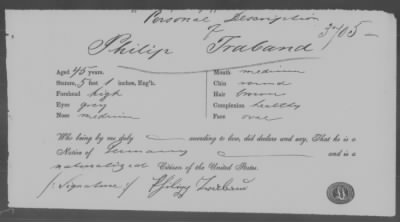 "Personal" Description
of 3705 -
Philip Traband
Aged 45 years.
Stature, 5 feet 1 inches, Eng'h.
Forehead high
Eyes gray
Nose medium
Mouth medium
Chin round
Hair brown
Complexion healthy
Face oval
Who being by me duly according to law, did declare and say, That he is a
Native of Germany and is a
naturalized Citizen of the United States.
(Signature) Philipp Traband